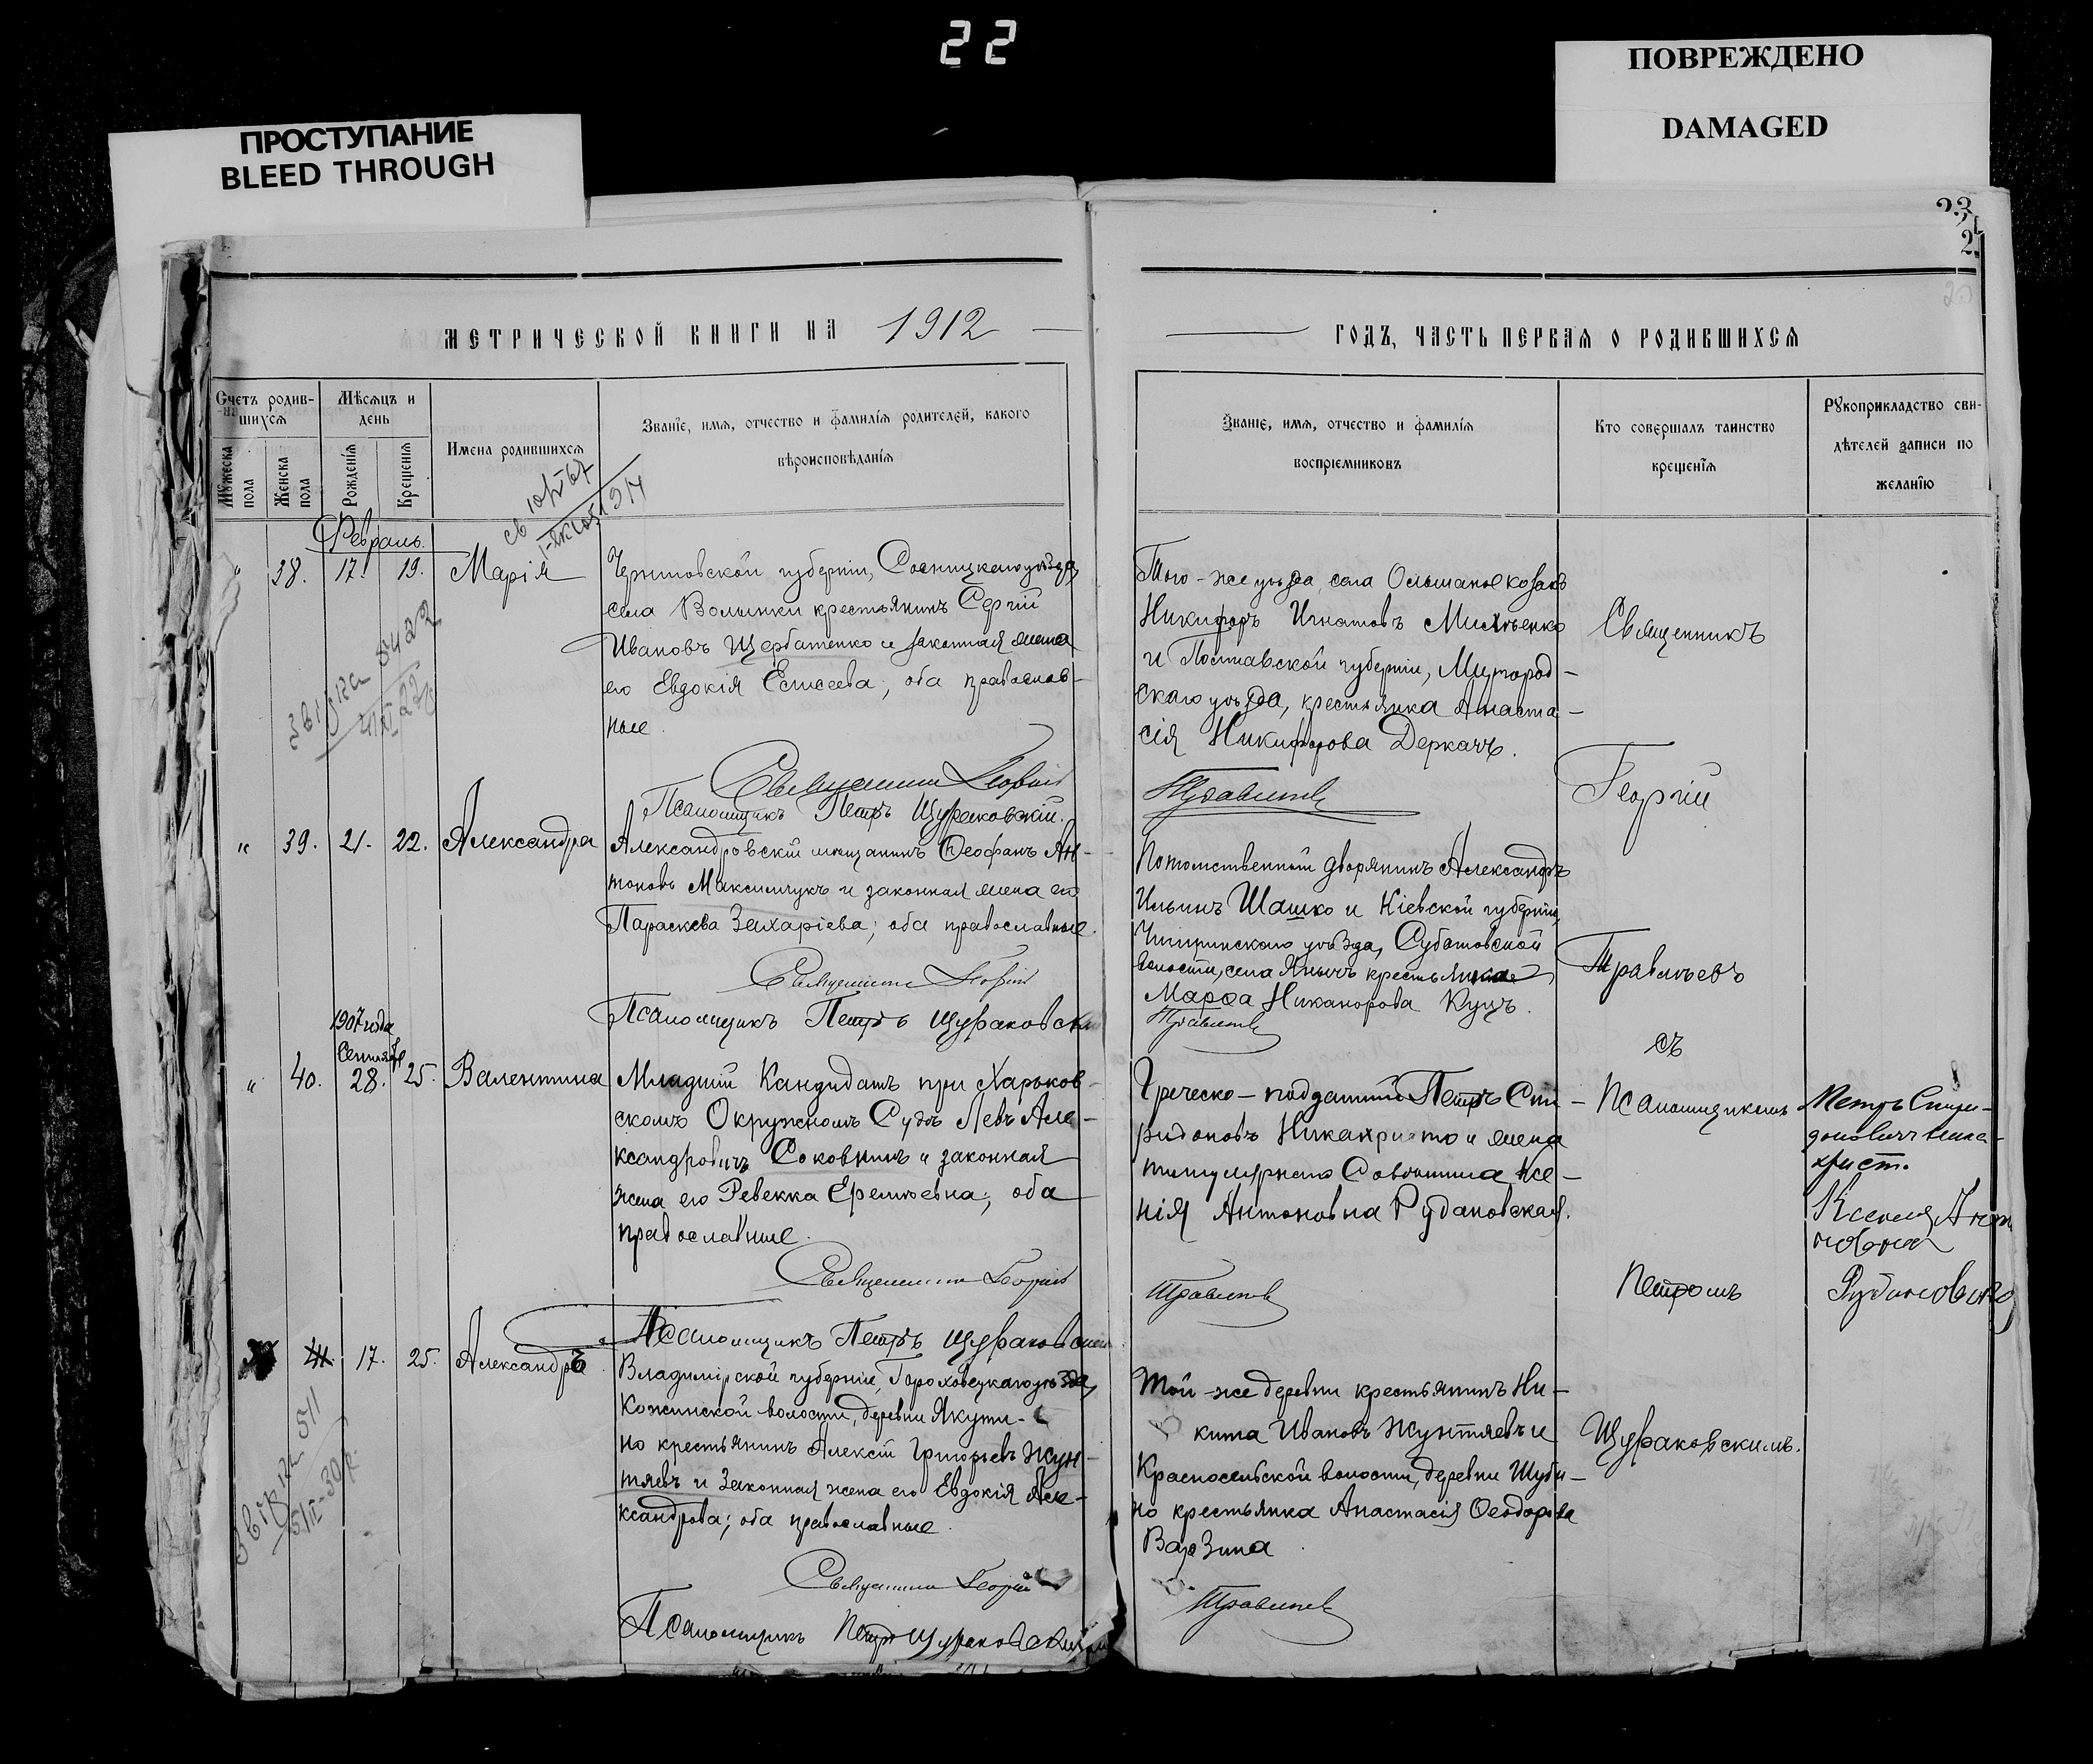 22
ПРОСТУПАНИЕ
BLEED THROUGH
ПОВРЕЖДЕНО
DAMAGED
23
2
МЕТРИЧЕСКОЙ КНИГИ НА 1912
ГОДЪ, ЧАСТЬ ПЕРВАЯ О РОДИВШИХСЯ
Счетъ родив-
шихся
Мѣсяцъ и
день
Мужеска
пола
Женска
пола
Рожденія
Крещенія
Имена родившихся
Званіе, имя, отчество и фамилія родителей, какого
вѣроисповѣданія
Званіе, имя, отчество и фамилія
воспріемниковъ
Кто совершалъ таинство
крещенія
Рукоприкладство сви-
дѣтелей записи по
желанію
Февраль.
" 38. 17. 19. Марія
Черниговской губерніи, Сосницкаго уѣзда,
села Волынки крестьянинъ Сергій
Ивановъ Щербатенко и законная жена
его Евдокія Елисеева; оба православ-
ные.
Священникъ Георгій
Псаломщикъ Петръ Щураковскій.
Того-же уѣзда, села Ольшаное козакъ
Никифоръ Игнатовъ
и Полтавской губерніи, Миргород-
скаго уѣзда, крестьянка Анаста-
сія Никифорова Деркачъ.
Травиневъ
" 39. 21. 22. Александра
Александровскій мѣщанинъ Ѳеофанъ Ан-
тоновъ Максимчукъ и законная жена его
Параскева Захаріева; оба православные.
Священникъ Георгій
Псаломщикъ Петръ Щураковскій
Потомственный дворянинъ Александръ
Ильинъ Шашко и Кіевской губерніи,
Чигиринскаго уѣзда, Субатовской
волости, села Янычъ крестьянка
Марѳа Никанорова Куцъ.
Травиневъ
1907 года
Сентября
" 40. 28. 25. Валентина
Младшій Кандидатъ при Харьков-
скомъ Окружномъ Судѣ Левъ Але-
ксандровичъ Соковнинъ и законная
жена его Ревекка Еремѣевна; оба
православные.
Священникъ Георгій
Псаломщикъ Петръ Щураковскій
Греческо-подданный Петръ Спи-
ридоновъ Никахристо и жена
титулярнаго Совѣтника Ксе-
нія Антоновна Рудановская.
Травиневъ
Петръ Спири-
доновичъ Ника-
христ.
Ксенія Анто
новна
41. 17. 25. Александръ
Владимірской губерніи, Гороховецкаго уѣзда,
Кожинской волости, деревни Якути-
но крестьянинъ Алексій Григорьевъ Жун-
тяевъ и законная жена его Евдокія Але-
ксандрова; оба православные.
Священникъ Георгій
Псаломщикъ Петръ Щураковскій
Той-же деревни крестьянинъ Ни-
кита Ивановъ Жунтяевъ и
Красносельской волости, деревни Шуби-
но крестьянка Анастасія Ѳеодорова
Варзина
Травиневъ
Священникъ
Георгій
Травиневъ
съ
Псаломщикомъ
Петромъ
Щураковскимъ.